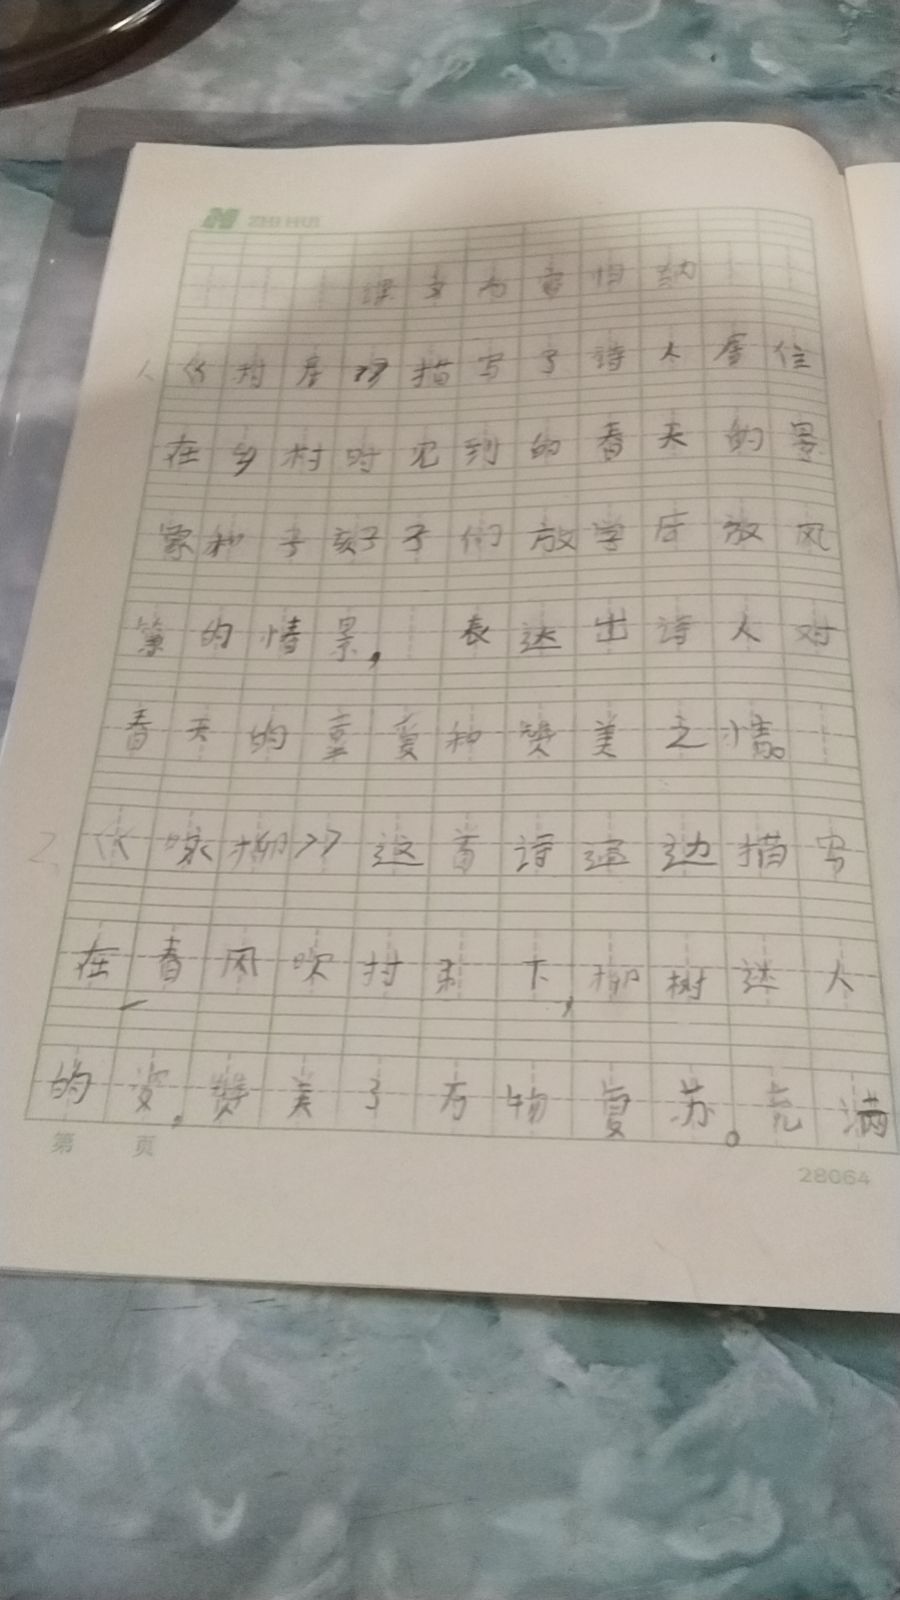 ZHI HUI
课文内容归纳
1、《村居》描写了诗人居住
在乡村时见到的春天的景
象和 孩子们放学后放风
筝的情景,表达出诗人对
春天的喜爱和赞美之情。
2、《咏柳》这首诗通过描写
在春风吹拂 下,柳树迷人
的姿,赞美了万物复苏。充满
第 页
28064